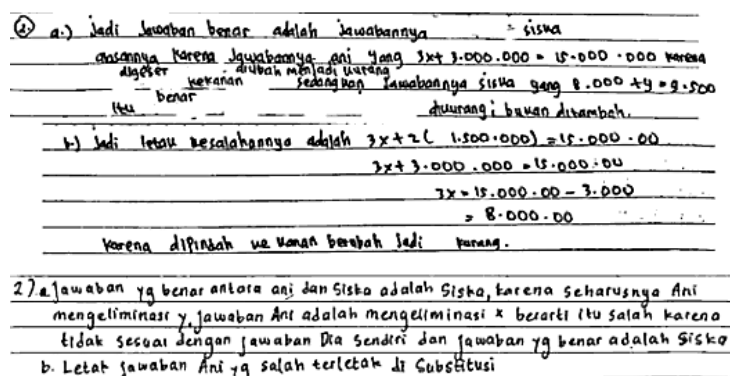 ② a.) Jadi Jawaban benar adalah Jawabannya = siska
alasannya karena Jawabannya ani yang 3x+ 3.000.000 = 15.000.000 karena
digeser kekanan diubah menjadi kurang sedangkan Jawabannya siska yang 8.000 + y = 9.500
itu benar dikurangi bukan ditambah.
b.) Jadi letak kesalahannya adalah 3x + 2( 1.500.000) = 15.000.00
3x + 3.000.000 = 15.000.00
3x = 15.000.00 - 3.000
= 8.000.00
karena dipindah ke kanan berubah Jadi kurang.
2). a Jawaban yg benar antara ani dan Siska adalah Siska, karena seharusnya Ani
mengeliminasi y, jawaban Ani adalah mengeliminasi x berarti itu salah karena
tidak sesuai dengan jawaban Dia sendiri dan jawaban yg benar adalah Siska
b. Letak jawaban Ani yg salah terletak di Substitusi